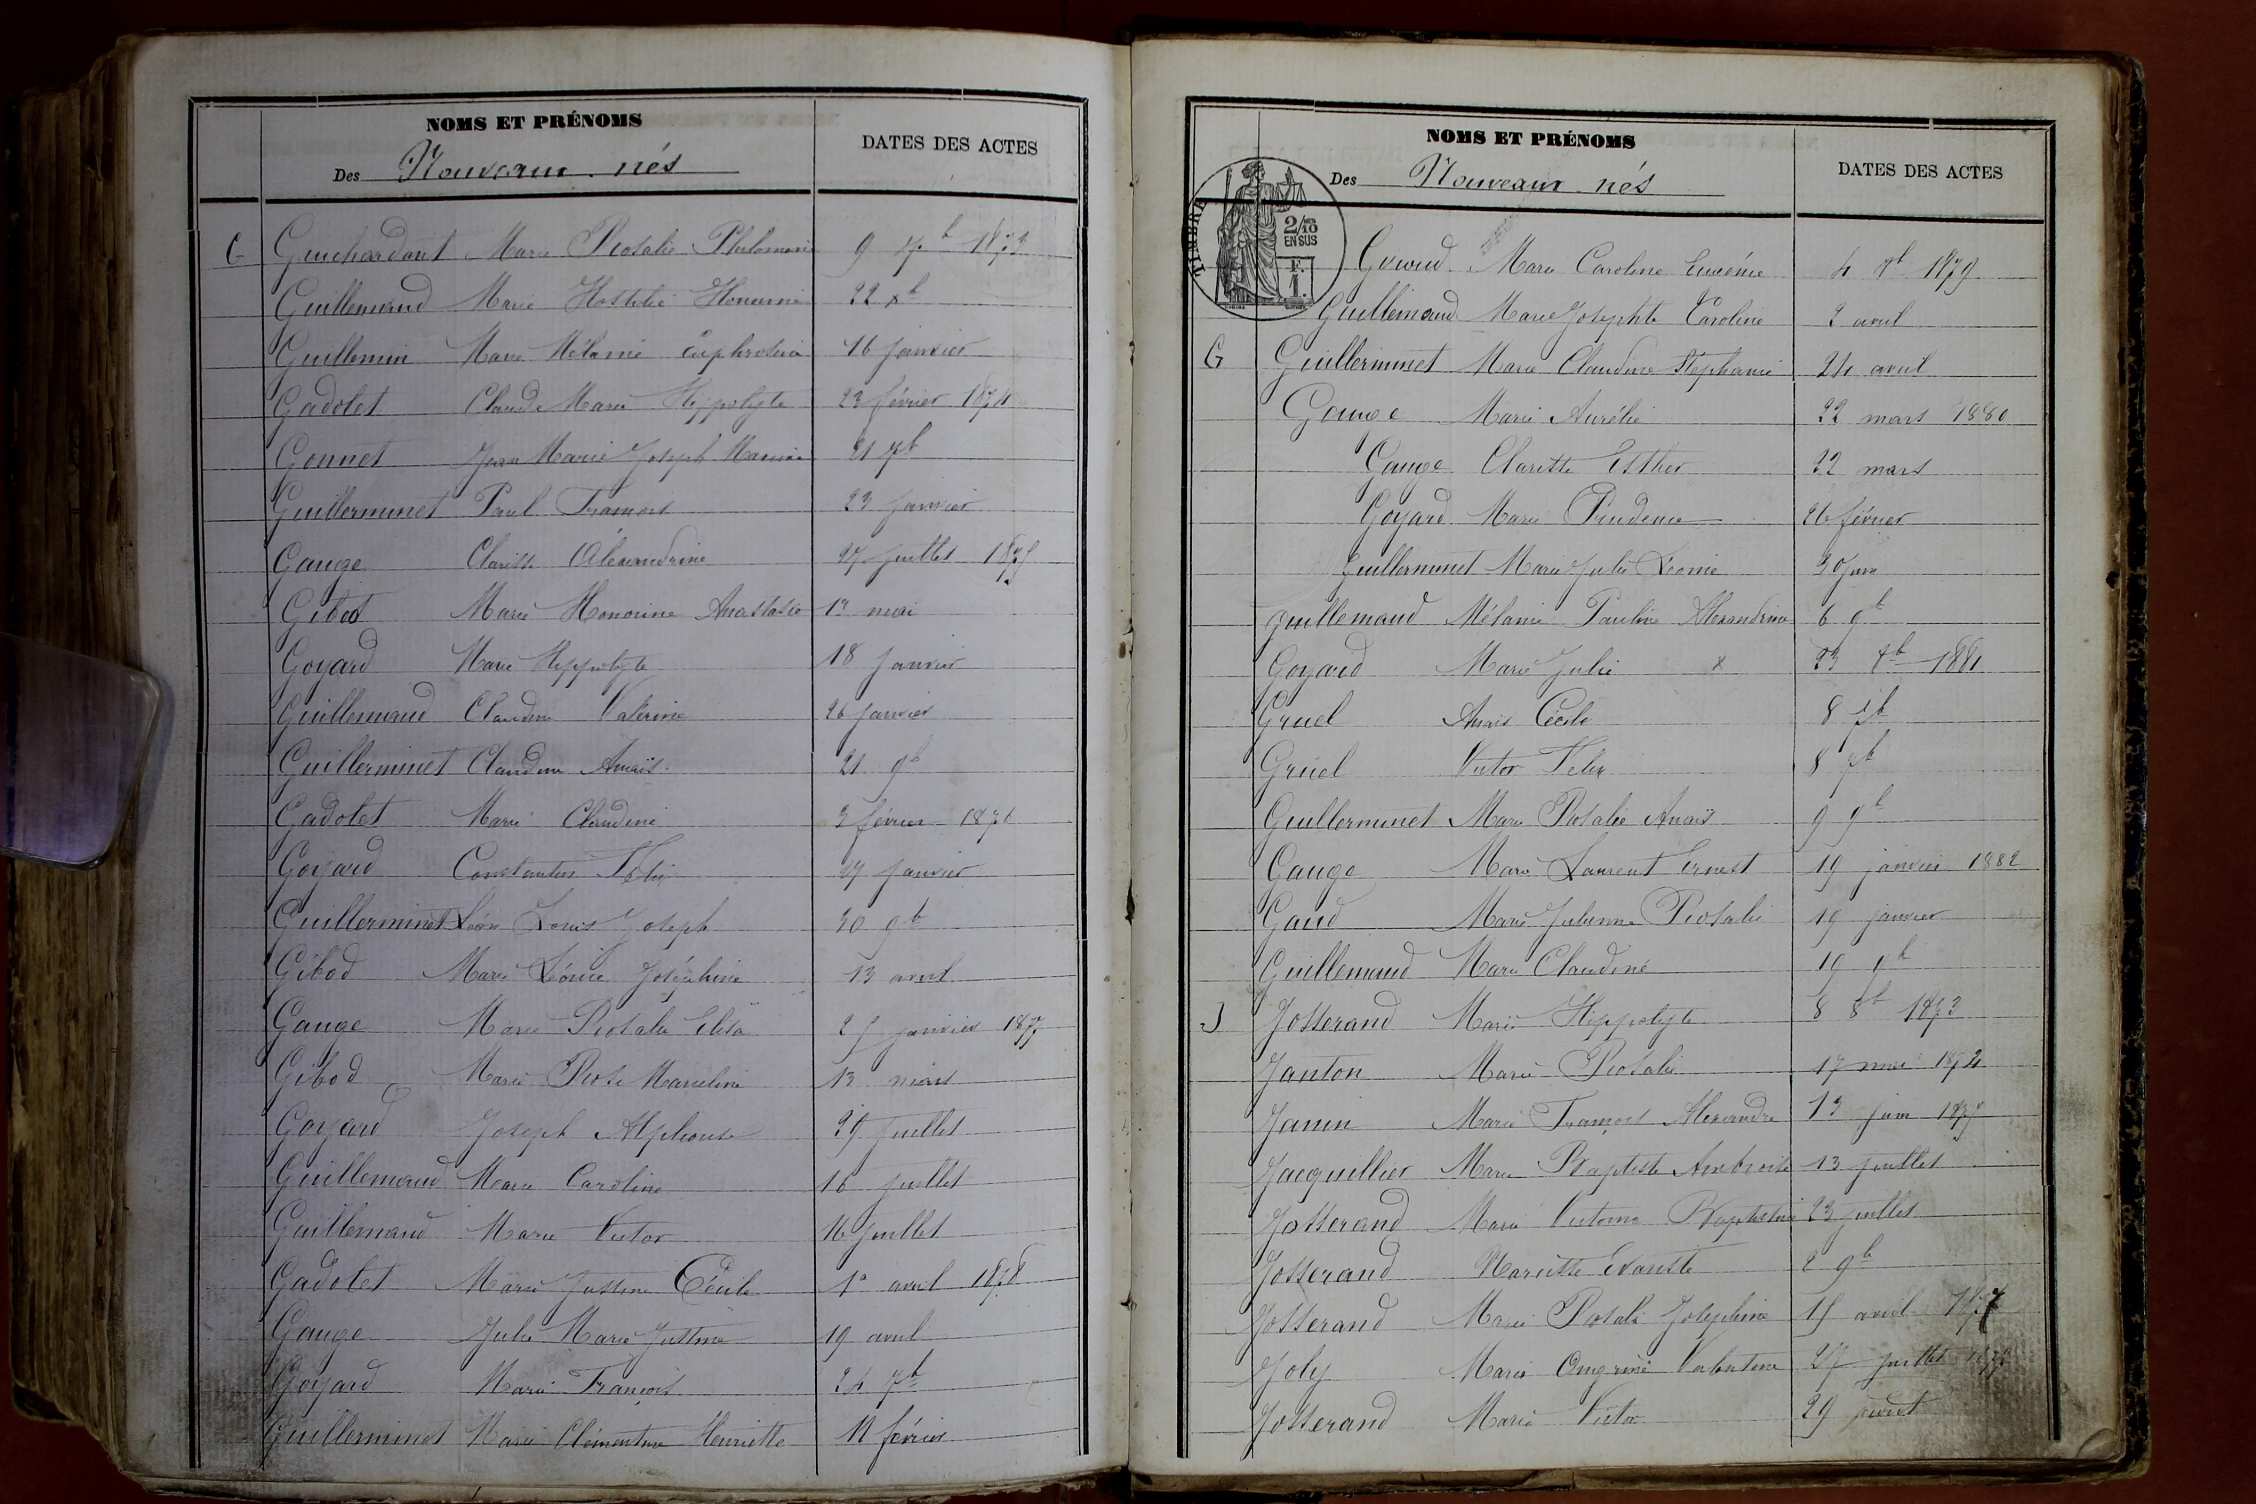 NOMS ET PRÉNOMS
DATES DES ACTES
Des Nouveaux nés
G Guichardant Marie Rosalie Philomène 9 7b 1873
Guillemaud Marie Honorine 22 xb
Guillemin Marie Mélanie Euphrosine 16 janvier
Gadolet Claude Marie Hippolyte 23 février 1874
Gonnet Jean Marie Joseph 21 7b
Guillerminet Paul François 23 janvier
Gauge Clarisse Alexandrine 27 juillet 1875
Gibod Marie Honorine Anastasie 13 mai
Goyard Marie Hippolyte 18 janvier
Guillemaud Claudine Valérine 26 janvier
Guillerminet Claudine Anaïs 21 9b
Gadolet Marie Claudine 3 février 1876
Goyard Constantin Félix 27 janvier
Guillerminet Léon Louis Joseph 30 9b
Gibod Marie Léonie Joséphine 13 avril
Gauge Marie Rosalie Elisa 25 janvier 1877
Gibod Marie Rose Marceline 13 mars
Goyard Joseph Alphonse 29 juillet
Guillemaud Marie Caroline 16 juillet
Guillemaud Marie Victor 16 juillet
Gadolet Marie Justine Cécile 1er avril 1878
Gauge Julie Marie Justine 19 avril
Goyard Marie François 24 7b
Guillerminet Marie Clémentine Henriette 11 février
NOMS ET PRÉNOMS
DATES DES ACTES
Des Nouveaux nés
TIMBRE
2/10
EN SUS
F.
1.
Marie Caroline Eugénie 1879
Guillemaud Marie Josephte Caroline 2 avril
G Guillerminet Marie Claudine Stéphanie 24 avril
Gauge Marie Aurélie 22 mars 1880
Gauge Clarisse Esther 22 mars
Goyard Marie Prudence 26 février
Guillerminet Marie Julie Léonie 30 juin
Guillemaud Mélanie Pauline Alexandrine 6 9b
Goyard Marie Julie x 23 1881
Gruel Anaïs Cécile 8 7b
Gruel Victor Félix 8 7b
Guillerminet Marie Rosalie Anaïs 9 9b
Gauge Marie Laurent Ernest 19 janvier 1882
Gaud Marie Julienne Rosalie 19 janvier
Guillemaud Marie Claudine 19 9b
J Josserand Marie Hippolyte 8 8b 1873
Janton Marie Rosalie 17 mai 1874
Janin Marie François Alexandre 13 juin 1875
Jacquillier Marie Baptiste Ambroise 13 juillet
Josserand Marie Victorine Baptistine 23 juillet
Josserand Evariste 2 9b
Josserand Marie Rosalie Joséphine 15 avril 1877
Joly Marie 27 juillet
Josserand Marie Victor 29